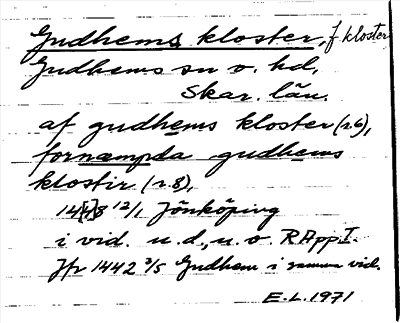 Gudhems kloster, f kloster
Gudhems sn o. hd,
Skar. län.
af gudhems kloster (r.6),
fornæmpda gudhems
klostir (r.8),
12/1 Jönköping
i vid. u.d., u.o. RApp I.
Jfr 1442 3/5 Gudhem i samma vid.
E.L. 1971